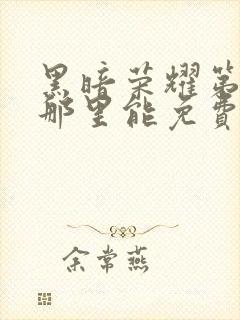 黑暗荣耀第
那里能免费
余常燕